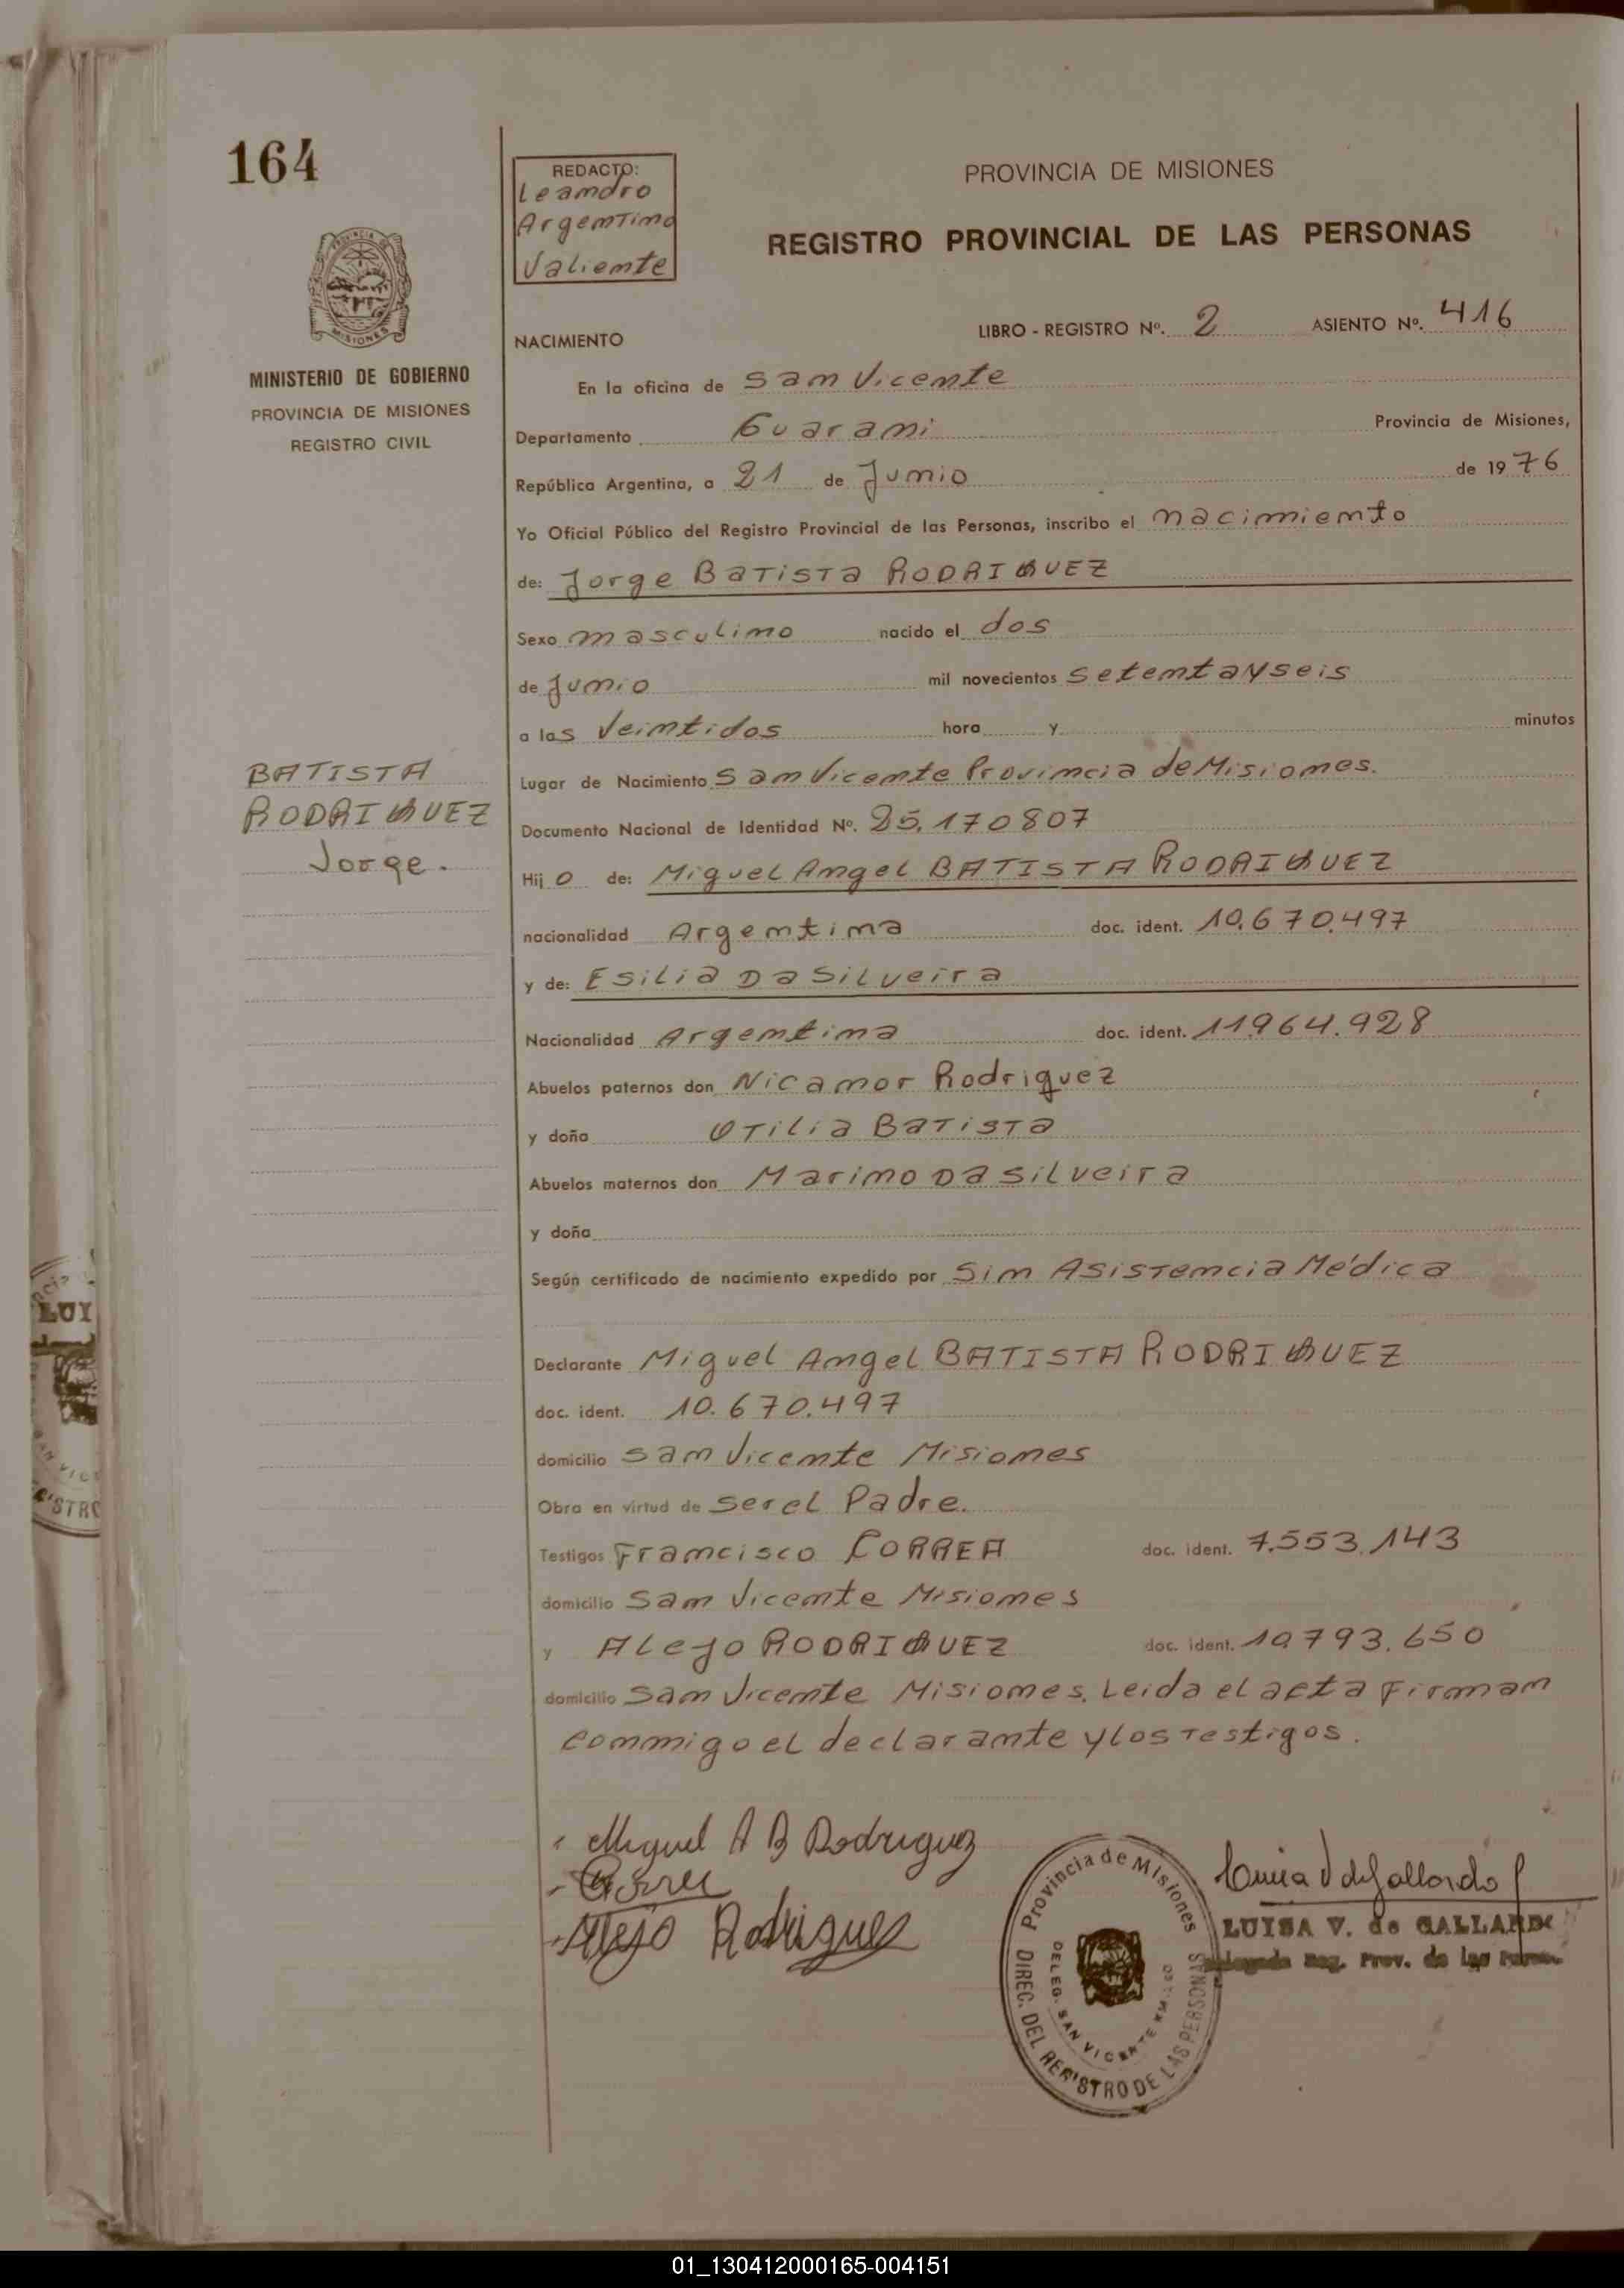 164
REDACTO:
Leandro
Argentino
Valiente
PROVINCIA DE MISIONES
REGISTRO PROVINCIAL DE LAS PERSONAS
PROVINCIA DE
MISIONES
MINISTERIO DE GOBIERNO
PROVINCIA DE MISIONES
REGISTRO CIVIL
NACIMIENTO
LIBRO - REGISTRO Nº. 2 ASIENTO Nº. 416
En la oficina de San Vicente
Departamento Guarani Provincia de Misiones,
República Argentina, a 21 de Junio de 1976
Yo Oficial Público del Registro Provincial de las Personas, inscribo el nacimiento
de: Jorge BATISTA RODRIGUEZ
Sexo masculino nacido el dos
de Junio mil novecientos setentayseis
a las Veintidos hora y minutos
BATISTA
RODRIGUEZ
Jorge.
Lugar de Nacimiento San Vicente Provincia de Misiones.
Documento Nacional de Identidad Nº. 25.170807
Hijo de: Miguel Angel BATISTA RODRIGUEZ
nacionalidad Argentina doc. ident. 10.670.497
y de: Esilia Da Silveira
Nacionalidad Argentina doc. ident. 11964.928
Abuelos paternos don Nicanor Rodriguez
y doña Otilia Batista
Abuelos maternos don Marino Da Silveira
y doña
Según certificado de nacimiento expedido por Sin Asistencia Médica
Declarante Miguel Angel BATISTA RODRIGUEZ
doc. ident. 10.670.497
domicilio San Vicente Misiones
Obra en virtud de ser el Padre.
Testigos Francisco CORREA doc. ident. 7.553.143
domicilio San Vicente Misiones
y Alejo RODRIGUEZ doc. ident. 10793.650
domicilio San Vicente Misiones. Leida el acta Firman
conmigo el declarante y los Testigos.
Miguel A B Rodriguez
Alejo Rodriguez
Provincia de Misiones
DIREC. DEL REGISTRO DE LAS PERSONAS
DELEG. SAN VICENTE
LUISA V. de GALLARDO
Reg. Prov. de las
LUI
01_130412000165-004151